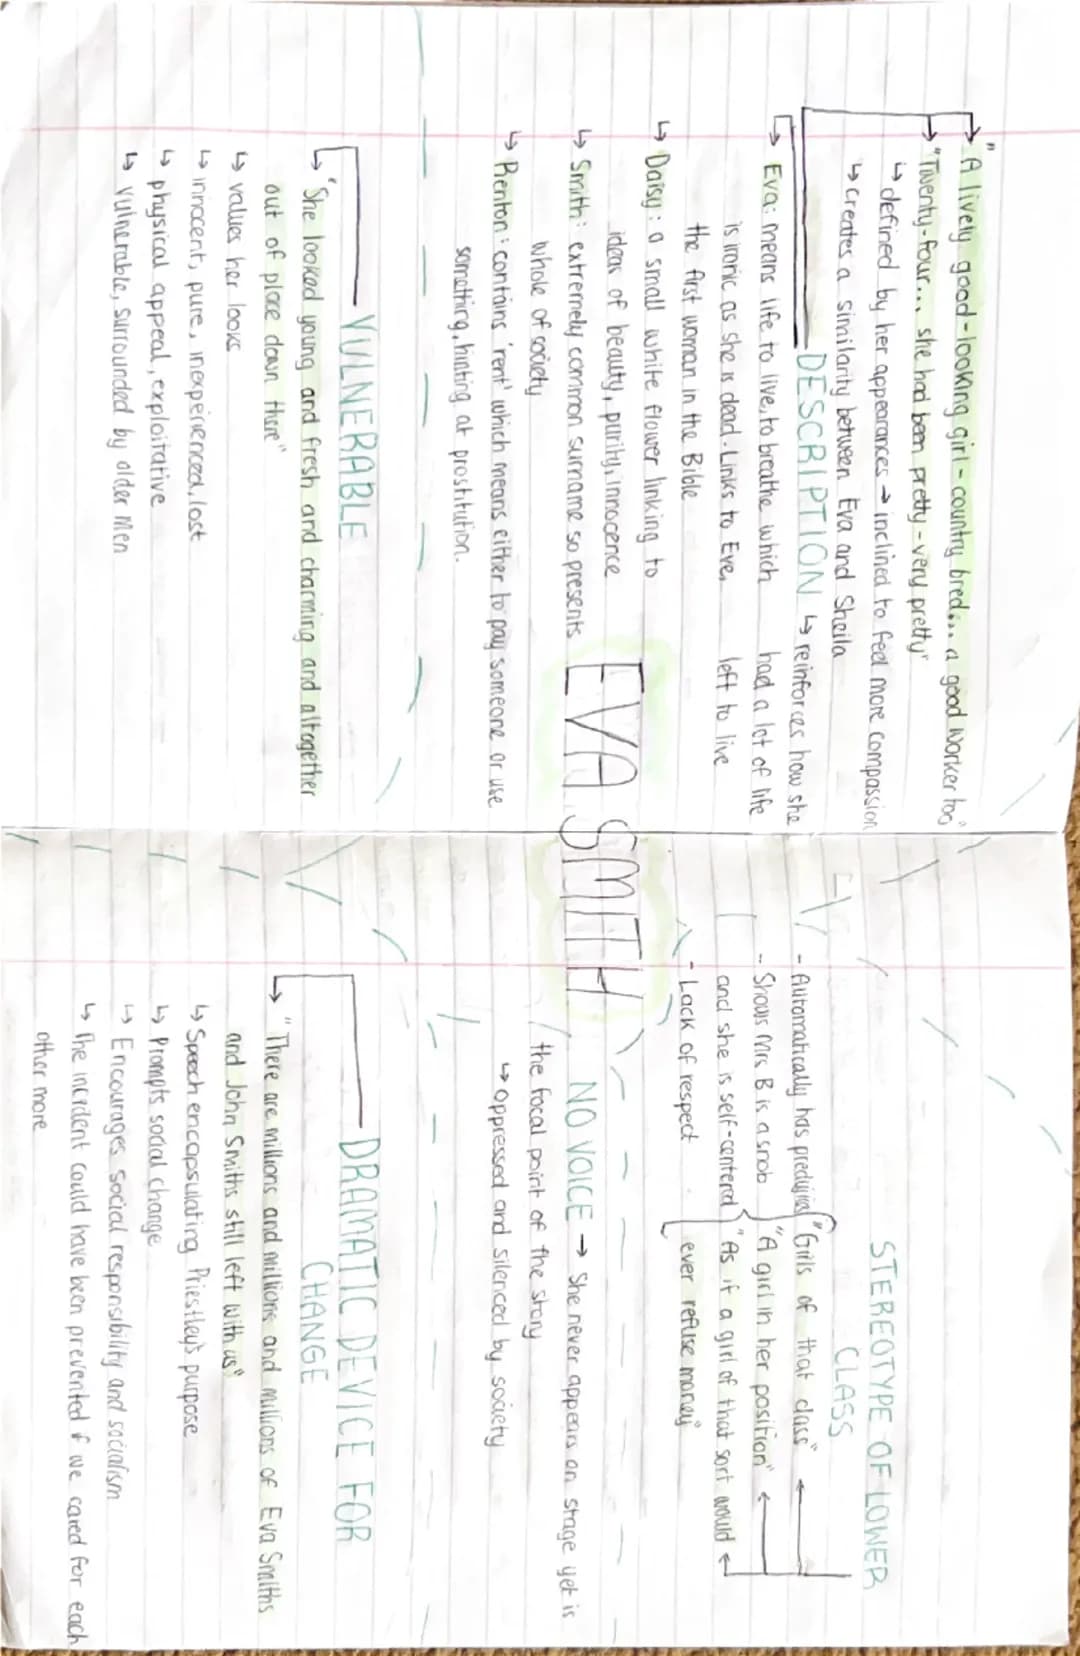 "A lively good-looking girl - country bred... a good worker too"
"Twenty-four... she had been pretty - very pretty"
↳ defined by her appearances → inclined to feel more compassion
↳ creates a similarity between Eva and Sheila
DESCRIPTION ↳ reinforces how she
had a lot of life
left to live
↳ Eva: means life to live, to breathe which
is ironic as she is dead. Links to Eve,
the first woman in the Bible
↳ Daisy: a small white flower linking to
ideas of beauty, purity, innocence
↳ Smith: extremely common surname so presents
whole of society
↳ Renton: contains 'rent' which means either to pay someone or use
something, hinting at prostitution.
EVA SMITH
VULNERABLE
↳ "She looked young and fresh and charming and altogether
out of place down there"
↳ values her looks
↳ innocent, pure, inexperienced, lost
↳ physical appeal, exploitative
↳ vulnerable, surrounded by older men
STEREOTYPE OF LOWER
CLASS
- Automatically has predujies "Girls of that class"
- Shows Mrs B is a snob "A girl in her position"
and she is self-centered "As if a girl of that sort would
- Lack of respect ever refuse money"
NO VOICE → She never appears on stage yet is
the focal point of the story
↳ Oppressed and silenced by society
DRAMATIC DEVICE FOR
CHANGE
↳ "There are millions and millions and millions of Eva Smiths
and John Smiths still left with us"
↳ Speech encapsulating Priestley's purpose
↳ Prompts social change
↳ Encourages social responsibility and socialism
↳ The incident could have been prevented if we cared for each
other more